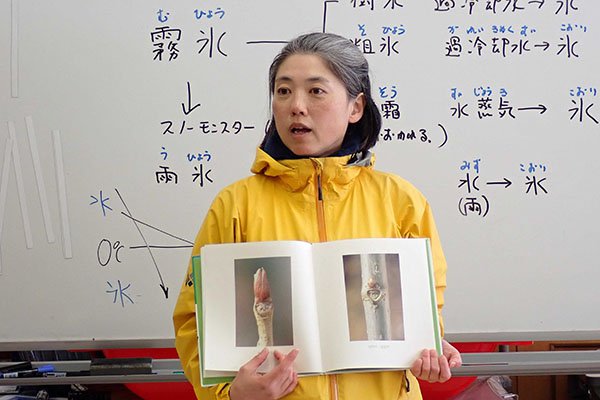 む ひょう
霧氷
樹氷
過冷却水→氷
そ ひょう
粗氷
か れいきゃく すい こおり
過冷却水→氷
そう
霜
すい じょう き こおり
水蒸気→氷
スノーモンスター(
う ひょう
雨氷
みず こおり
水→氷
(雨)
水
0℃
氷